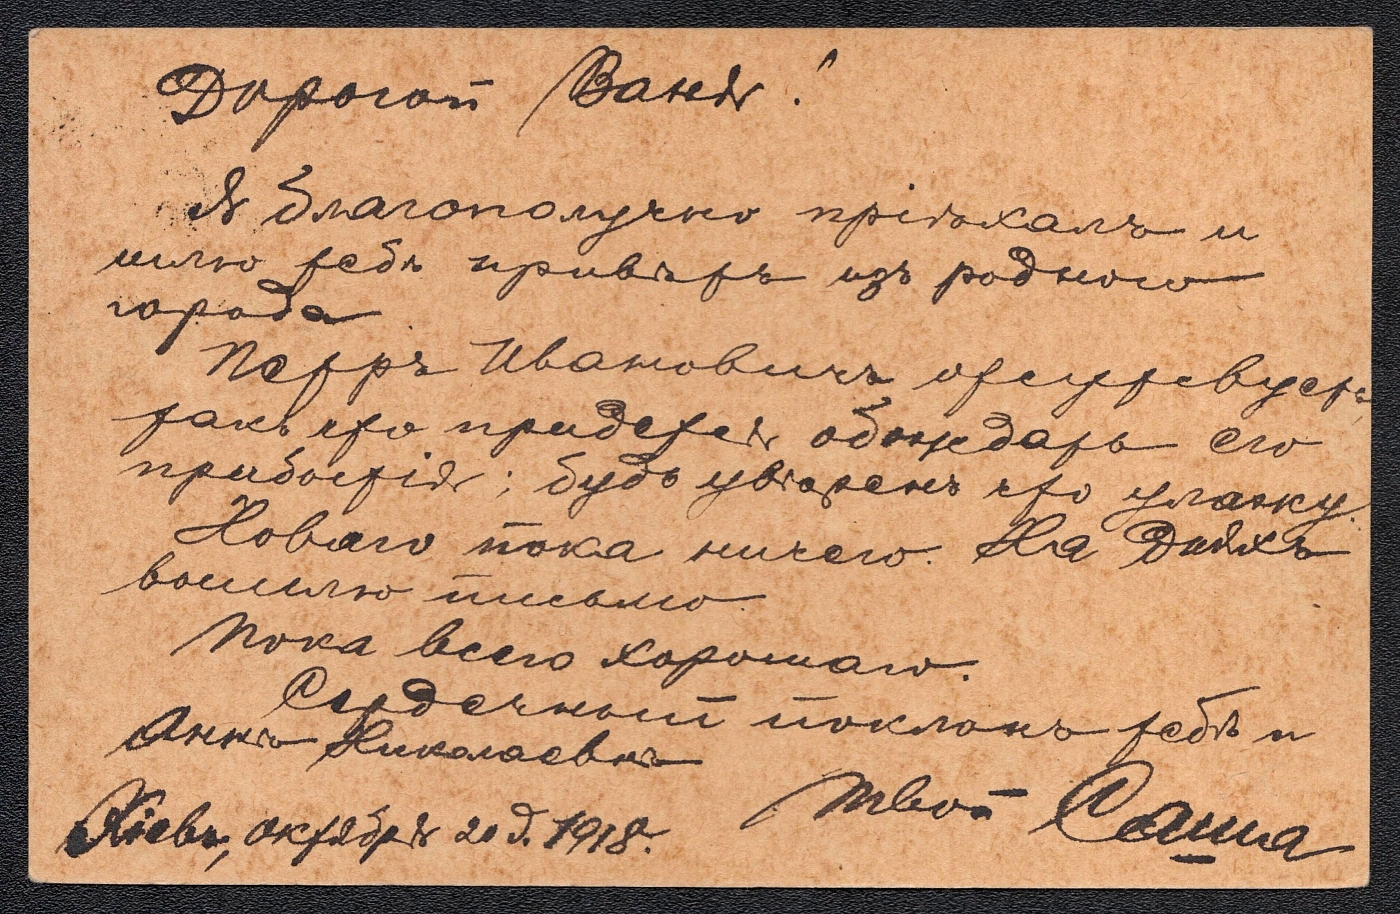 Дорогой Ваня!
Я благополучно пріѣхалъ и
шлю тебѣ привѣтъ изъ родного
города
Петръ Ивановичъ отсутствуетъ,
такъ что придется обождать его
прибытія; будь увѣренъ что улажу.
Новаго пока ничего. На дняхъ
вышлю письмо.
Пока всего хорошаго.
Сердечный поклонъ тебѣ и
Аннѣ Николаевнѣ
Твой Саша
Кіевъ, октября 20 д. 1918.